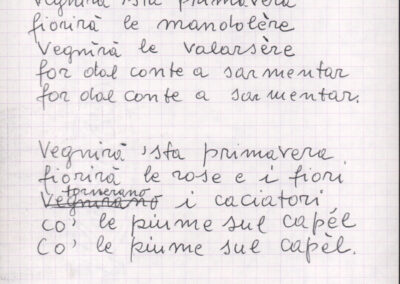 Vegnirà 'sta primavera
fiorirà le mandolère
Vegnirà le valarsère
for dal conte a sarmentar
for dal conte a sarmentar.
Vegnirà 'sta primavera
fiorirà le rose e i fiori
tornerano
Vegnirano i caciatori
co' le piume sul capél
Co' le piume sul capèl.